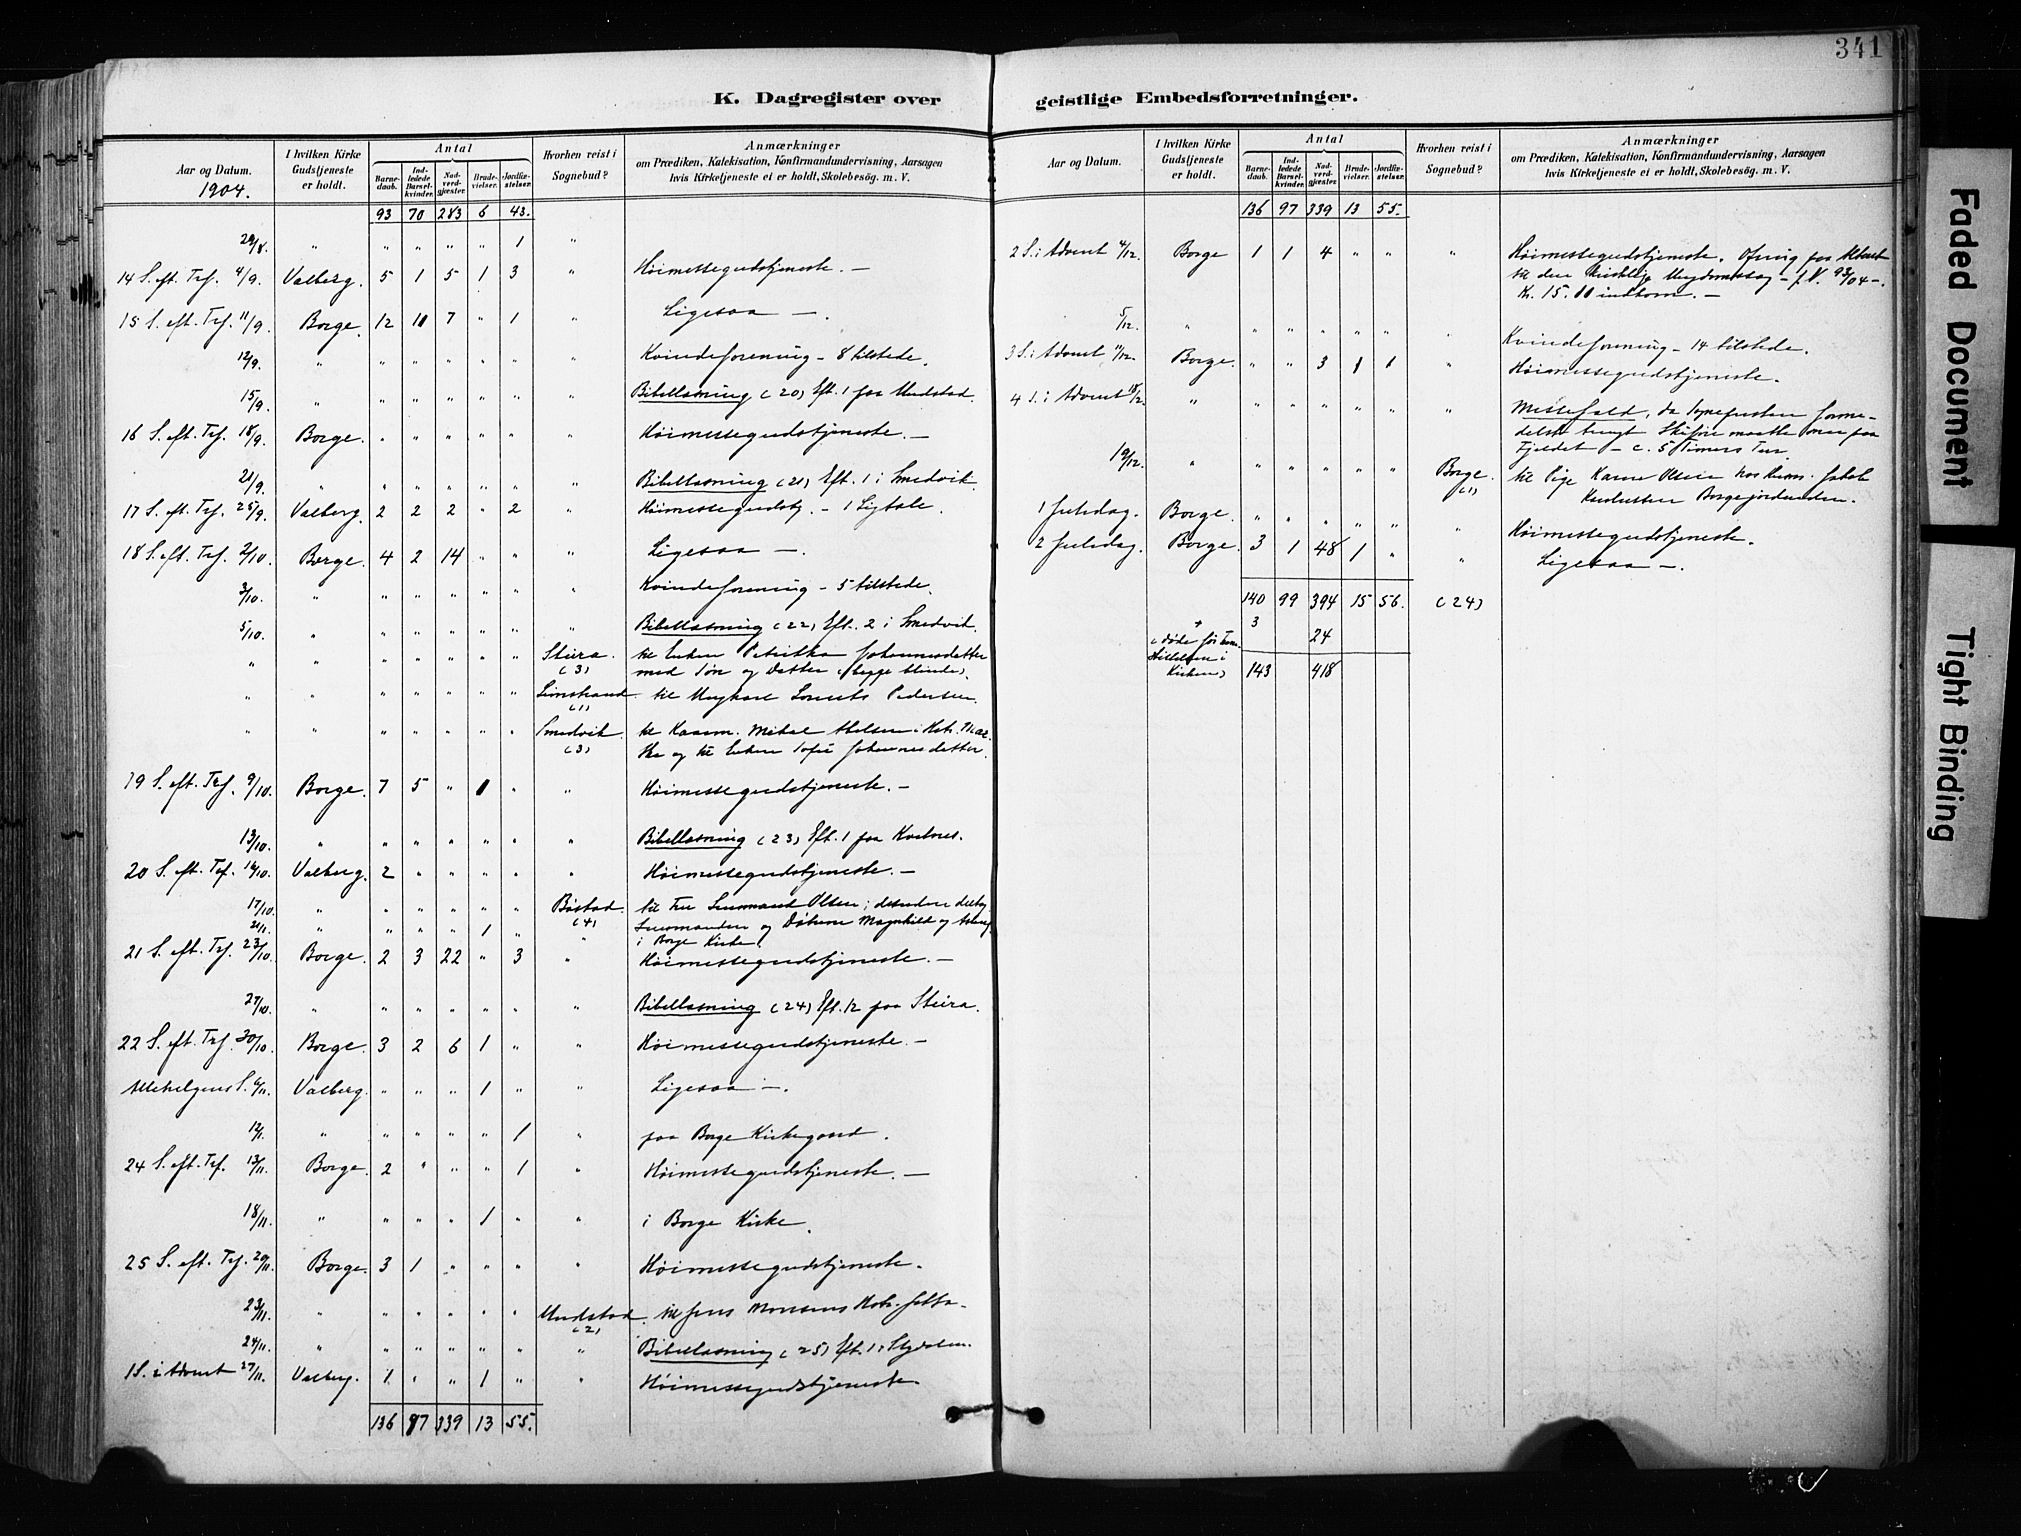 341
K. Dagregister over
geistlige Embedsforretninger.
Aar og Datum.
1904.
I hvilken Kirke
Gudstjeneste
er holdt.
Antal
Barne-
daab.
Ind-
ledede
Barsel-
kvinder.
Nad-
verd-
gjæster.
Brude-
vielser.
Jordfæ-
stelser.
Hvorhen reist i
Sognebud?
Anmærkninger
om Prædiken, Katekisation, Konfirmandundervisning, Aarsagen
hvis Kirketjeneste ei er holdt, Skolebesøg. m. V.
93 70 283 6 43.
28/8. " " " " " 1 "
14 S. eft. Tref. 4/9. Valberg. 5 1 5 1 3 " Høimessegudstjeneste. —
15 S. eft. Tref. 11/9. Borge. 12 10 7 " 1 " Ligesaa —.
12/9. " " " " " " " Kvindeforening - 8 tilstede.
15/9. " " " " " " " Bibellæsning (20) Eft. 1 paa Unstad.
16 S. eft. Tref. 18/9. Borge. " " " " " " Høimessegudstjeneste. —
21/9. " " " " " " " Bibellæsning (21) Eft. 1 i Smedvik.
17 S. eft. Tref. 25/9. Valberg. 2 2 2 " 2 " Høimessegudstj. - 1 Ligtale.
18 S. eft. Tref. 2/10. Borge. 4 2 14 " " " Ligesaa —.
3/10. " " " " " " " Kvindeforening - 5 tilstede.
5/10. " " " " " " " Bibellæsning (22) Eft. 2 i Smedvik.
" " " " " " " Steira. (3) til Enken Petrikka Johannesdatter
med Søn og Datter (begge blinde).
" " " " " " " Limstrand (1) til Ungkarl Lorents Pedersen.
" " " " " " " Smedvik. (3) til Kaarm. Mikal Abelsen i Hstr.
og til Enken Sofie Johannesdatter.
19 S. eft. Tref. 9/10. Borge. 7 5 " 1 " " Høimessegudstjeneste. —
13/10. " " " " " " " Bibellæsning (23) Eft. 1 paa Kvalnes.
20 S. eft. Tref. 16/10. Valberg. 2 " " " " " Høimessegudstjeneste. —
17/10. " " " " " " Bøstad. (4) til Fru Lensmand Olsen;
21/1. " " " " 1 " " Lensmanden og Døtrene Magnhild og
i Borge Kirke.
21 S. eft. Tref. 23/10. Borge. 2 3 22 " 3 " Høimessegudstjeneste. —
27/10. " " " " " " " Bibellæsning (24) Eft. 12 paa Steira.
22 S. eft. Tref. 30/10. Borge. 3 2 6 1 " " Høimessegudstjeneste. —
Allehelgens S. 6/11. Valberg. " " " 1 " " Ligesaa —.
12/1. " " " " " 1 " paa Borge Kirkegaard.
24 S. eft. Tref. 13/11. Borge. 2 " " " 1 " Høimessegudstjeneste. —
18/11. " " " " 1 " " i Borge Kirke.
25 S. eft. Tref. 20/11. Borge. 3 1 " " " " Høimessegudstjeneste.
23/11. " " " " " " Unstad. (2) til Jens Monsens Hstr.
24/11. " " " " " " " Bibellæsning (25) Eft. 1 i
1 S. i Advent 27/11. Valberg. 1 " " 1 " " Høimessegudstjeneste.
136 97 339 13 55.
Aar og Datum.
I hvilken Kirke
Gudstjeneste
er holdt.
Antal
Barne-
daab.
Ind-
ledede
Barsel-
kvinder.
Nad-
verd-
gjæster.
Brude-
vielser.
Jordfæ-
stelser.
Hvorhen reist i
Sognebud?
Anmærkninger
om Prædiken, Katekisation, Konfirmandundervisning, Aarsagen
hvis Kirketjeneste ei er holdt, Skolebesøg. m. V.
136 97 339 13 55.
2 S. i Advent 4/12. Borge 1 1 4 " " " Høimessegudstjeneste. Ofring paa Alteret
til den kirkelige Ungdomssag - f. V. 93/04 -.
Kr. 15.00 indkom. —
5/12. " " " " " " " Kvindeforening - 14 tilstede.
3 S. i Advent 11/12. Borge. " " 3 1 1 " Høimessegudstjeneste.
4 S. i Advent 18/12. " " " " " " " Messefald, da Sognepresten forme-
delst tungt Skiføre maatte over paa
Fjeldet - c. 5 Timers Tur.
19/12. " " " " " " Borge. (1) til Pige Karen Olsen hos Jakob
Borgejordenden.
1 Juledag. Borge. " " " " " " Høimessegudstjeneste.
2 Juledag. Borge. 3 1 48 1 " " Ligesaa —.
140 99 394 15 56. (24)
3 24
+
(døde før Frem-
stillelsen i
Kirken)
143 418
Faded Document
Tight Binding